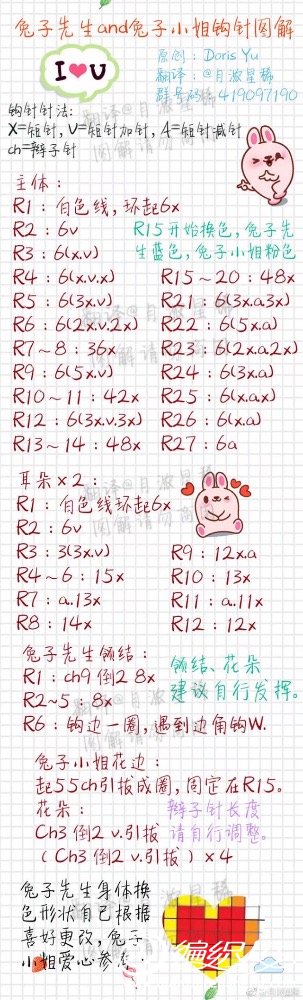 兔子先生and兔子小姐钩针图解
I ♥ U
原创：Doris Yu
翻译：@月浓星稀
群号码：419097190
钩针针法：
X=短针，V=短针加针，A=短针减针
ch=辫子针
主体：
R1：白色线，环起6x
R2：6v
R3：6(x.v)
R4：6(x.v.x)
R5：6(3x.v)
R6：6(2x.v.2x)
R7~8：36x
R9：6(5x.v)
R10~11：42x
R12：6(3x.v.3x)
R13~14：48x
R15开始换色，兔子先
生蓝色，兔子小姐粉色
R15~20：48x
R21：6(3x.a.3x)
R22：6(5x.a)
R23：6(2x.a.2x)
R24：6(3x.a)
R25：6(x.a.x)
R26：6(x.a)
R27：6a
耳朵×2：
R1：白色线环起6x
R2：6v
R3：3(3x.v)
R4~6：15x
R7：a.13x
R8：14x
R9：12x.a
R10：13x
R11：a.11x
R12：12x
兔子先生领结：
R1：ch9 倒2 8x
R2~5：8x
R6：钩边一圈，遇到边角钩W.
领结、花朵
建议自行发挥。
兔子小姐花边：
起55ch引拔成圈，固定在R15。
花朵：
Ch3 倒2 v.引拔
（Ch3 倒2 v.引拔）×4
辫子针长度
请自行调整。
兔子先生身体换
色形状自己根据
喜好更改，兔子
小姐爱心参
编织
翻译@月浓星稀
图解请勿商用